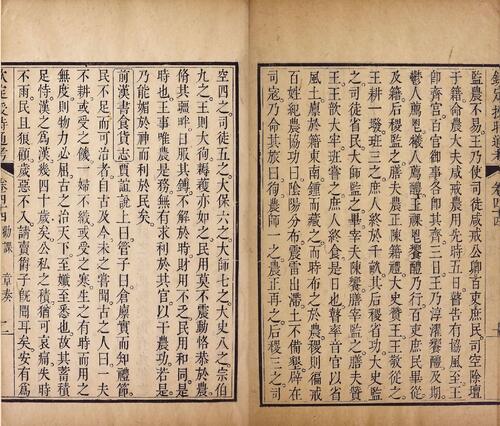 監農不易。王乃使司徒咸戒公卿百吏庶民。司空除壇
于籍。命農大夫咸戒農用。先時五日。瞽告有協風至。王
卽齊宮。百官御事。各卽其齊三日。王乃淳濯饗醴。及期。
鬱人薦鬯。犧人薦醴。王祼鬯。饗醴乃行。百吏庶民畢從。
及籍。后稷監之。膳夫農正陳籍禮。大史贊王。王敬從之。
王耕一墢。班三之。庶人終於千畝。其后稷省功。大史監
之。司徒省民。大師監之。畢。宰夫陳饗。膳宰監之。膳夫贊
王。王歆大牢。班嘗之。庶人終食。是日也。瞽率音官以省
風土。廩於籍東南。鍾而藏之。而時布之於農。稷則徧戒
百姓。紀農協功。曰。陰陽分布。震雷出滯。土不備墾。辟在
司寇。乃命其旅曰徇。農師一之。農正再之。后稷三之。司
空四之。司徒五之。大保六之。大師七之。大史八之。宗伯
九之。王則大徇。耨穫亦如之。民用莫不震動。恪恭於農。
脩其疆畔。日服其鎛。不解於時。財用不乏。民用和同。是
時也。王事唯農是務。無有求利於其官。以干農功。若是
乃能媚於神而利於民矣。
前漢書食貨志賈誼說上曰。管子曰。倉廩實而知禮節。
民不足而可治者。自古及今。未之嘗聞。古之人曰。一夫
不耕。或受之饑。一婦不織。或受之寒。生之有時。而用之
無度。則物力必屈。古之治天下。至孅至悉也。故其蓄積
足恃。漢之爲漢。幾四十歲矣。公私之積。猶可哀痛。失時
不雨。民且狼顧。歲惡不入。請賣爵子。旣聞耳矣。安有爲
授時通考 卷四四 勸課 章奏 二